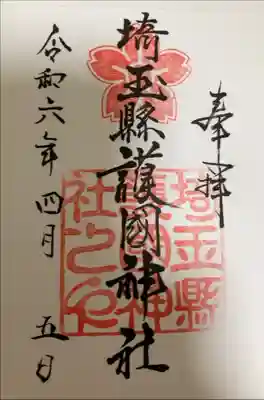 奉拝
埼玉縣護國神社
埼玉縣
護國神
社之印
令和六年四月五日